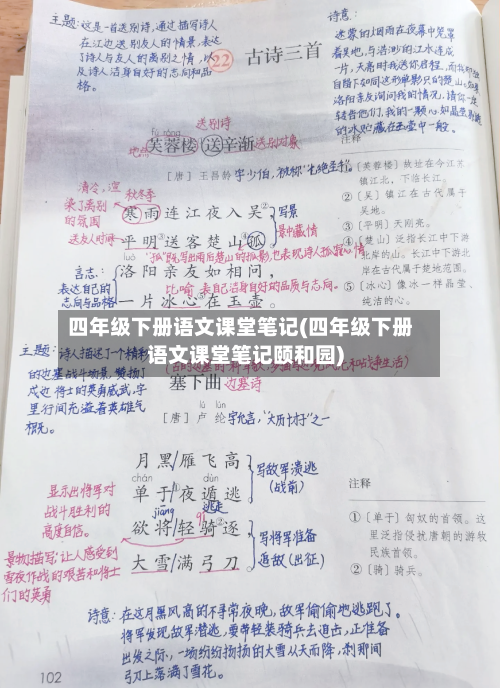 主题:这是一首送别诗,通过描写诗人
在江边送别友人的情景,表达
了诗人与友人的离别之情,以
及诗人洁身自好的志向和品
格。
22 古诗三首
诗意:
迷蒙的烟雨在夜幕中笼罩
着吴地,与浩渺的江水连成
一片,天亮时我送你启程,而我却独
自留下如同这形单影只的楚山。如果
洛阳亲友询问我的情况,请你一定
转告他们,我的一颗心如晶莹剔透
的冰贮藏在玉壶中一般。
送别诗
fú róng
地点 芙蓉楼送辛渐 送别对象
[唐] 王昌龄 字少伯,被称“七绝圣手”。
清冷,渲
染了离别
的氛围
秋冬季
寒雨连江夜入吴② 写景
送友人时间 平明③送客楚山④孤。 景中藏情
洛阳亲友如相问,
言志:
表达自己的
志向与品格
比喻 表自己洁身自好的品质与志向。
一片冰心⑤在玉壶。
注释
①[芙蓉楼]故址在今江苏
镇江北,下临长江。
②[吴]镇江在古代属于
吴地。
③[平明]天刚亮。
④[楚山]泛指长江中下游
北岸的山。长江中下游北
岸在古代属于楚地范围。
⑤[冰心]像冰一样晶莹、
纯洁的心。
四年级下册语文课堂笔记(四年级下册
语文课堂笔记颐和园)
主题:诗人描述了一个精彩
的边塞战斗场景,赞扬了
戍边将士的英勇威武,字
里行间充溢着英雄气
概。
塞下曲 边塞诗
lú lún
[唐] 卢纶 字允言,“大历十才子”之一
月黑/雁飞高
chán dùn
单于①/夜遁逃 写敌军溃逃
(战前)
逃走
jiāng qí
欲将/轻骑②逐
大雪/满弓刀 写将军准备
追敌(出征)
显示出将军对
战斗胜利的
高度自信。
景物描写:让人感受到
雪夜作战的艰苦和将士
们的英勇
注释
①[单于]匈奴的首领。这
里泛指侵扰唐朝的游牧
民族首领。
②[骑]骑兵。
诗意:在这月黑风高的不寻常夜晚,敌军偷偷地逃跑了。
将军发现敌军潜逃,要带轻装骑兵去追击,正准备
出发之际,一场纷纷扬扬的大雪从天而降,刹那间
弓刀上落满了雪花。
102